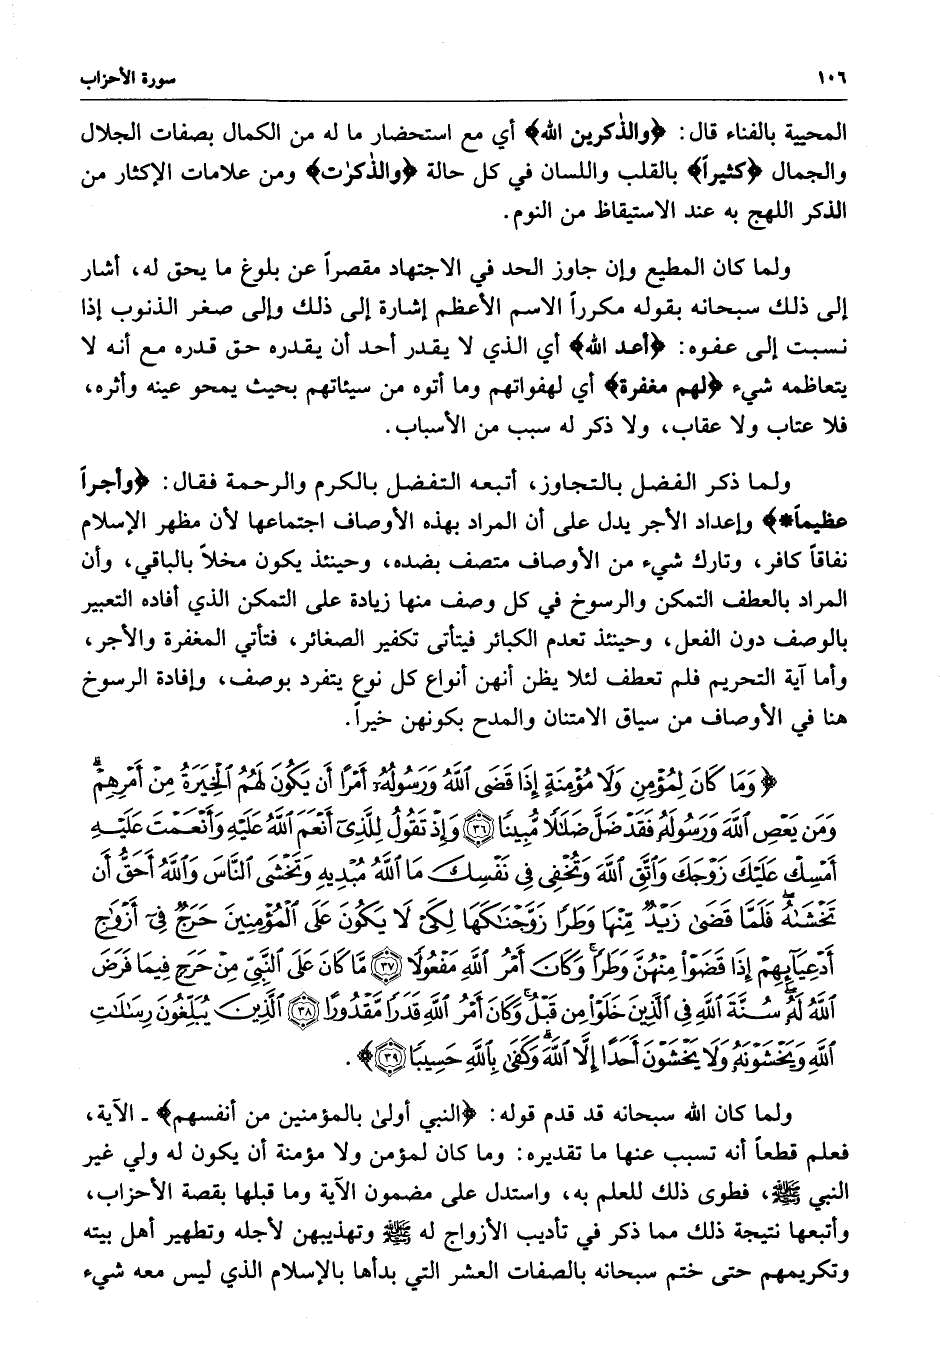 ١٠٦ سورة الأحزاب
المحيية بالفناء قال: ﴿والذٰكرين الله﴾ أي مع استحضار ما له من الكمال بصفات الجلال
والجمال ﴿كثيراً﴾ بالقلب واللسان في كل حالة ﴿والذٰكرٰت﴾ ومن علامات الإكثار من
الذكر اللهج به عند الاستيقاظ من النوم.
ولما كان المطيع وإن جاوز الحد في الاجتهاد مقصراً عن بلوغ ما يحق له، أشار
إلى ذلك سبحانه بقوله مكرراً الاسم الأعظم إشارة إلى ذلك وإلى صغر الذنوب إذا
نسبت إلى عفوه: ﴿أعد الله﴾ أي الذي لا يقدر أحد أن يقدره حق قدره مع أنه لا
يتعاظمه شيء ﴿لهم مغفرة﴾ أي لهفواتهم وما أتوه من سيئاتهم بحيث يمحو عينه وأثره،
فلا عتاب ولا عقاب، ولا ذكر له سبب من الأسباب.
ولما ذكر الفضل بالتجاوز، أتبعه التفضل بالكرم والرحمة فقال: ﴿وأجراً
عظيماً*﴾ وإعداد الأجر يدل على أن المراد بهذه الأوصاف اجتماعها لأن مظهر الإسلام
نفاقاً كافر، وتارك شيء من الأوصاف متصف بضده، وحينئذ يكون مخلاً بالباقي، وأن
المراد بالعطف التمكن والرسوخ في كل وصف منها زيادة على التمكن الذي أفاده التعبير
بالوصف دون الفعل، وحينئذ تعدم الكبائر فيتأتى تكفير الصغائر، فتأتي المغفرة والأجر،
وأما آية التحريم فلم تعطف لئلا يظن أنهن أنواع كل نوع يتفرد بوصف، وإفادة الرسوخ
هنا في الأوصاف من سياق الامتنان والمدح بكونهن خيراً.
﴿وَمَا كَانَ لِمُؤْمِنٍ وَلَا مُؤْمِنَةٍ إِذَا قَضَى ٱللَّهُ وَرَسُولُهُۥٓ أَمْرًا أَن يَكُونَ لَهُمُ ٱلْخِيَرَةُ مِنْ أَمْرِهِمْ ۗ
وَمَن يَعْصِ ٱللَّهَ وَرَسُولَهُۥ فَقَدْ ضَلَّ ضَلَٰلًا مُّبِينًا ٣٦ وَإِذْ تَقُولُ لِلَّذِىٓ أَنْعَمَ ٱللَّهُ عَلَيْهِ وَأَنْعَمْتَ عَلَيْهِ
أَمْسِكْ عَلَيْكَ زَوْجَكَ وَٱتَّقِ ٱللَّهَ وَتُخْفِى فِى نَفْسِكَ مَا ٱللَّهُ مُبْدِيهِ وَتَخْشَى ٱلنَّاسَ وَٱللَّهُ أَحَقُّ أَن
تَخْشَىٰهُ ۖ فَلَمَّا قَضَىٰ زَيْدٌ مِّنْهَا وَطَرًا زَوَّجْنَٰكَهَا لِكَىْ لَا يَكُونَ عَلَى ٱلْمُؤْمِنِينَ حَرَجٌ فِىٓ أَزْوَٰجِ
أَدْعِيَآئِهِمْ إِذَا قَضَوْا۟ مِنْهُنَّ وَطَرًا ۚ وَكَانَ أَمْرُ ٱللَّهِ مَفْعُولًا ٣٧ مَّا كَانَ عَلَى ٱلنَّبِىِّ مِنْ حَرَجٍ فِيمَا فَرَضَ
ٱللَّهُ لَهُۥ ۖ سُنَّةَ ٱللَّهِ فِى ٱلَّذِينَ خَلَوْا۟ مِن قَبْلُ ۚ وَكَانَ أَمْرُ ٱللَّهِ قَدَرًا مَّقْدُورًا ٣٨ ٱلَّذِينَ يُبَلِّغُونَ رِسَٰلَٰتِ
ٱللَّهِ وَيَخْشَوْنَهُۥ وَلَا يَخْشَوْنَ أَحَدًا إِلَّا ٱللَّهَ ۗ وَكَفَىٰ بِٱللَّهِ حَسِيبًا ٣٩﴾.
ولما كان الله سبحانه قد قدم قوله: ﴿النبي أولىٰ بالمؤمنين من أنفسهم﴾ ـ الآية،
فعلم قطعاً أنه تسبب عنها ما تقديره: وما كان لمؤمن ولا مؤمنة أن يكون له ولي غير
النبي ﷺ، فطوى ذلك للعلم به، واستدل على مضمون الآية وما قبلها بقصة الأحزاب،
وأتبعها نتيجة ذلك مما ذكر في تأديب الأزواج له ﷺ وتهذيبهن لأجله وتطهير أهل بيته
وتكريمهم حتى ختم سبحانه بالصفات العشر التي بدأها بالإسلام الذي ليس معه شيء